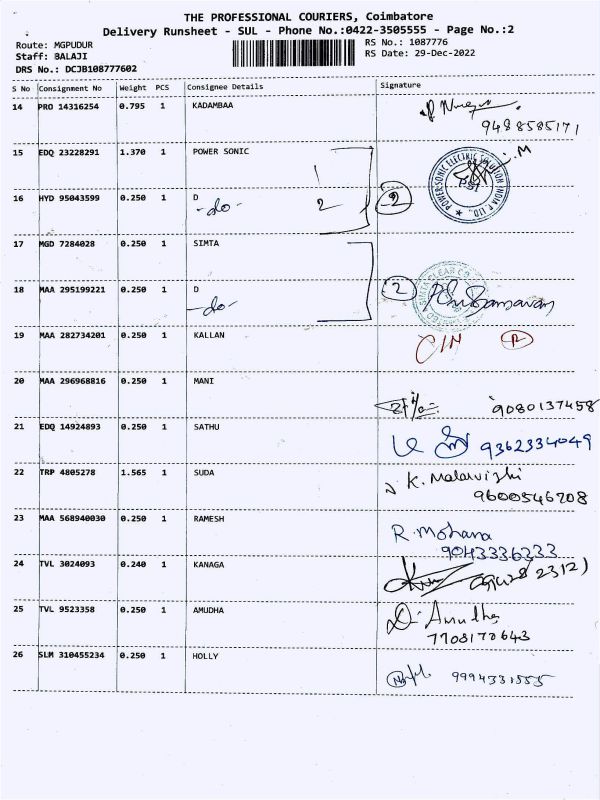 THE PROFESSIONAL COURIERS, Coimbatore
Delivery Runsheet - SUL - Phone No.:0422-3505555 - Page No.:2
Route: MGPUDUR
RS No.: 1087776
Staff: BALAJI
RS Date: 29-Dec-2022
DRS No.: DCJB108777602
S No Consignment No Weight PCS Consignee Details Signature
14 PRO 14316254 0.795 1 KADAMBAA
9488585171
15 EDQ 23228291 1.370 1 POWER SONIC
16 HYD 95043599 0.250 1 D
-do- 2 2
17 MGD 7284028 0.250 1 SIMTA
18 MAA 295199221 0.250 1 D
-do- 2
19 MAA 282734201 0.250 1 KALLAN
C/N R
20 MAA 296968816 0.250 1 MANI
9080137458
21 EDQ 14924893 0.250 1 SATHU
9362334049
22 TRP 4805278 1.565 1 SUDA
K. Malarvizhi
9600546208
23 MAA 568940030 0.250 1 RAMESH
R. Mohana
9043336333
24 TVL 3024093 0.240 1 KANAGA
25 TVL 9523358 0.250 1 AMUDHA
D. Amudha
7708170643
26 SLM 310455234 0.250 1 HOLLY
9994331555